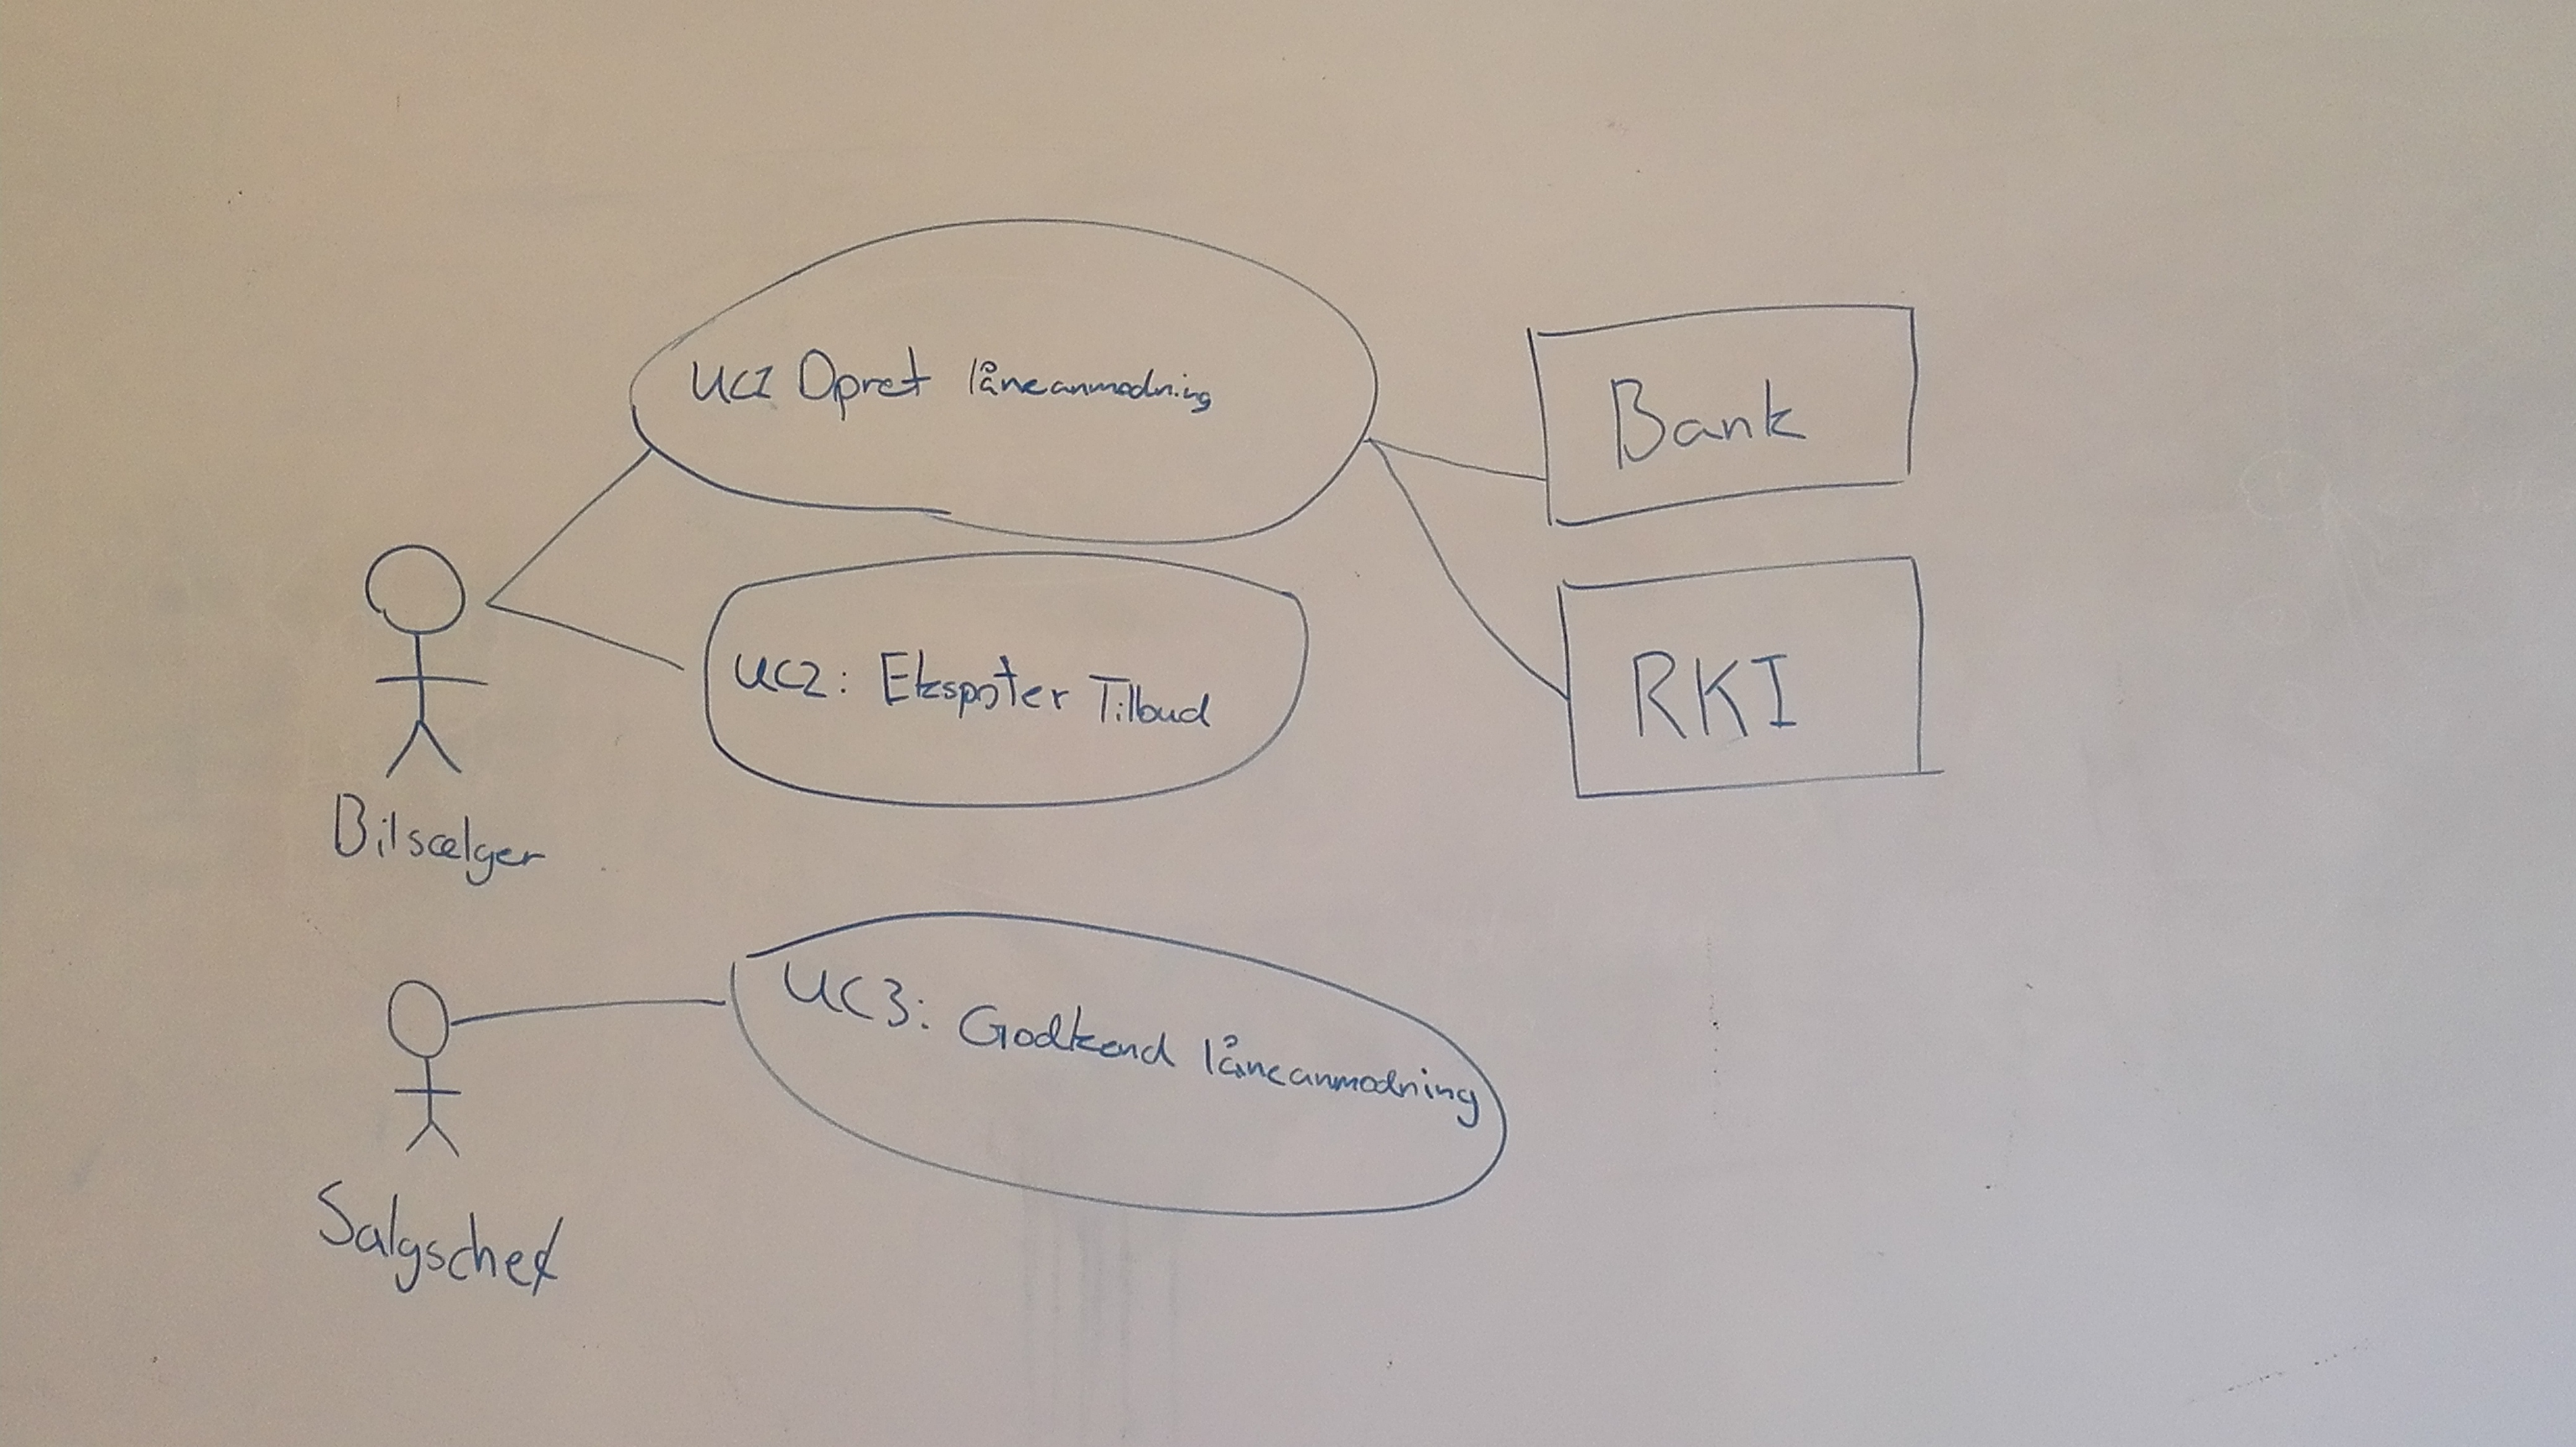 UC1 Opret låneanmodning
Bank
UC2: Ekspoter Tilbud
RKI
Bilsælger
UC3: Godkend låneanmodning
Salgschef